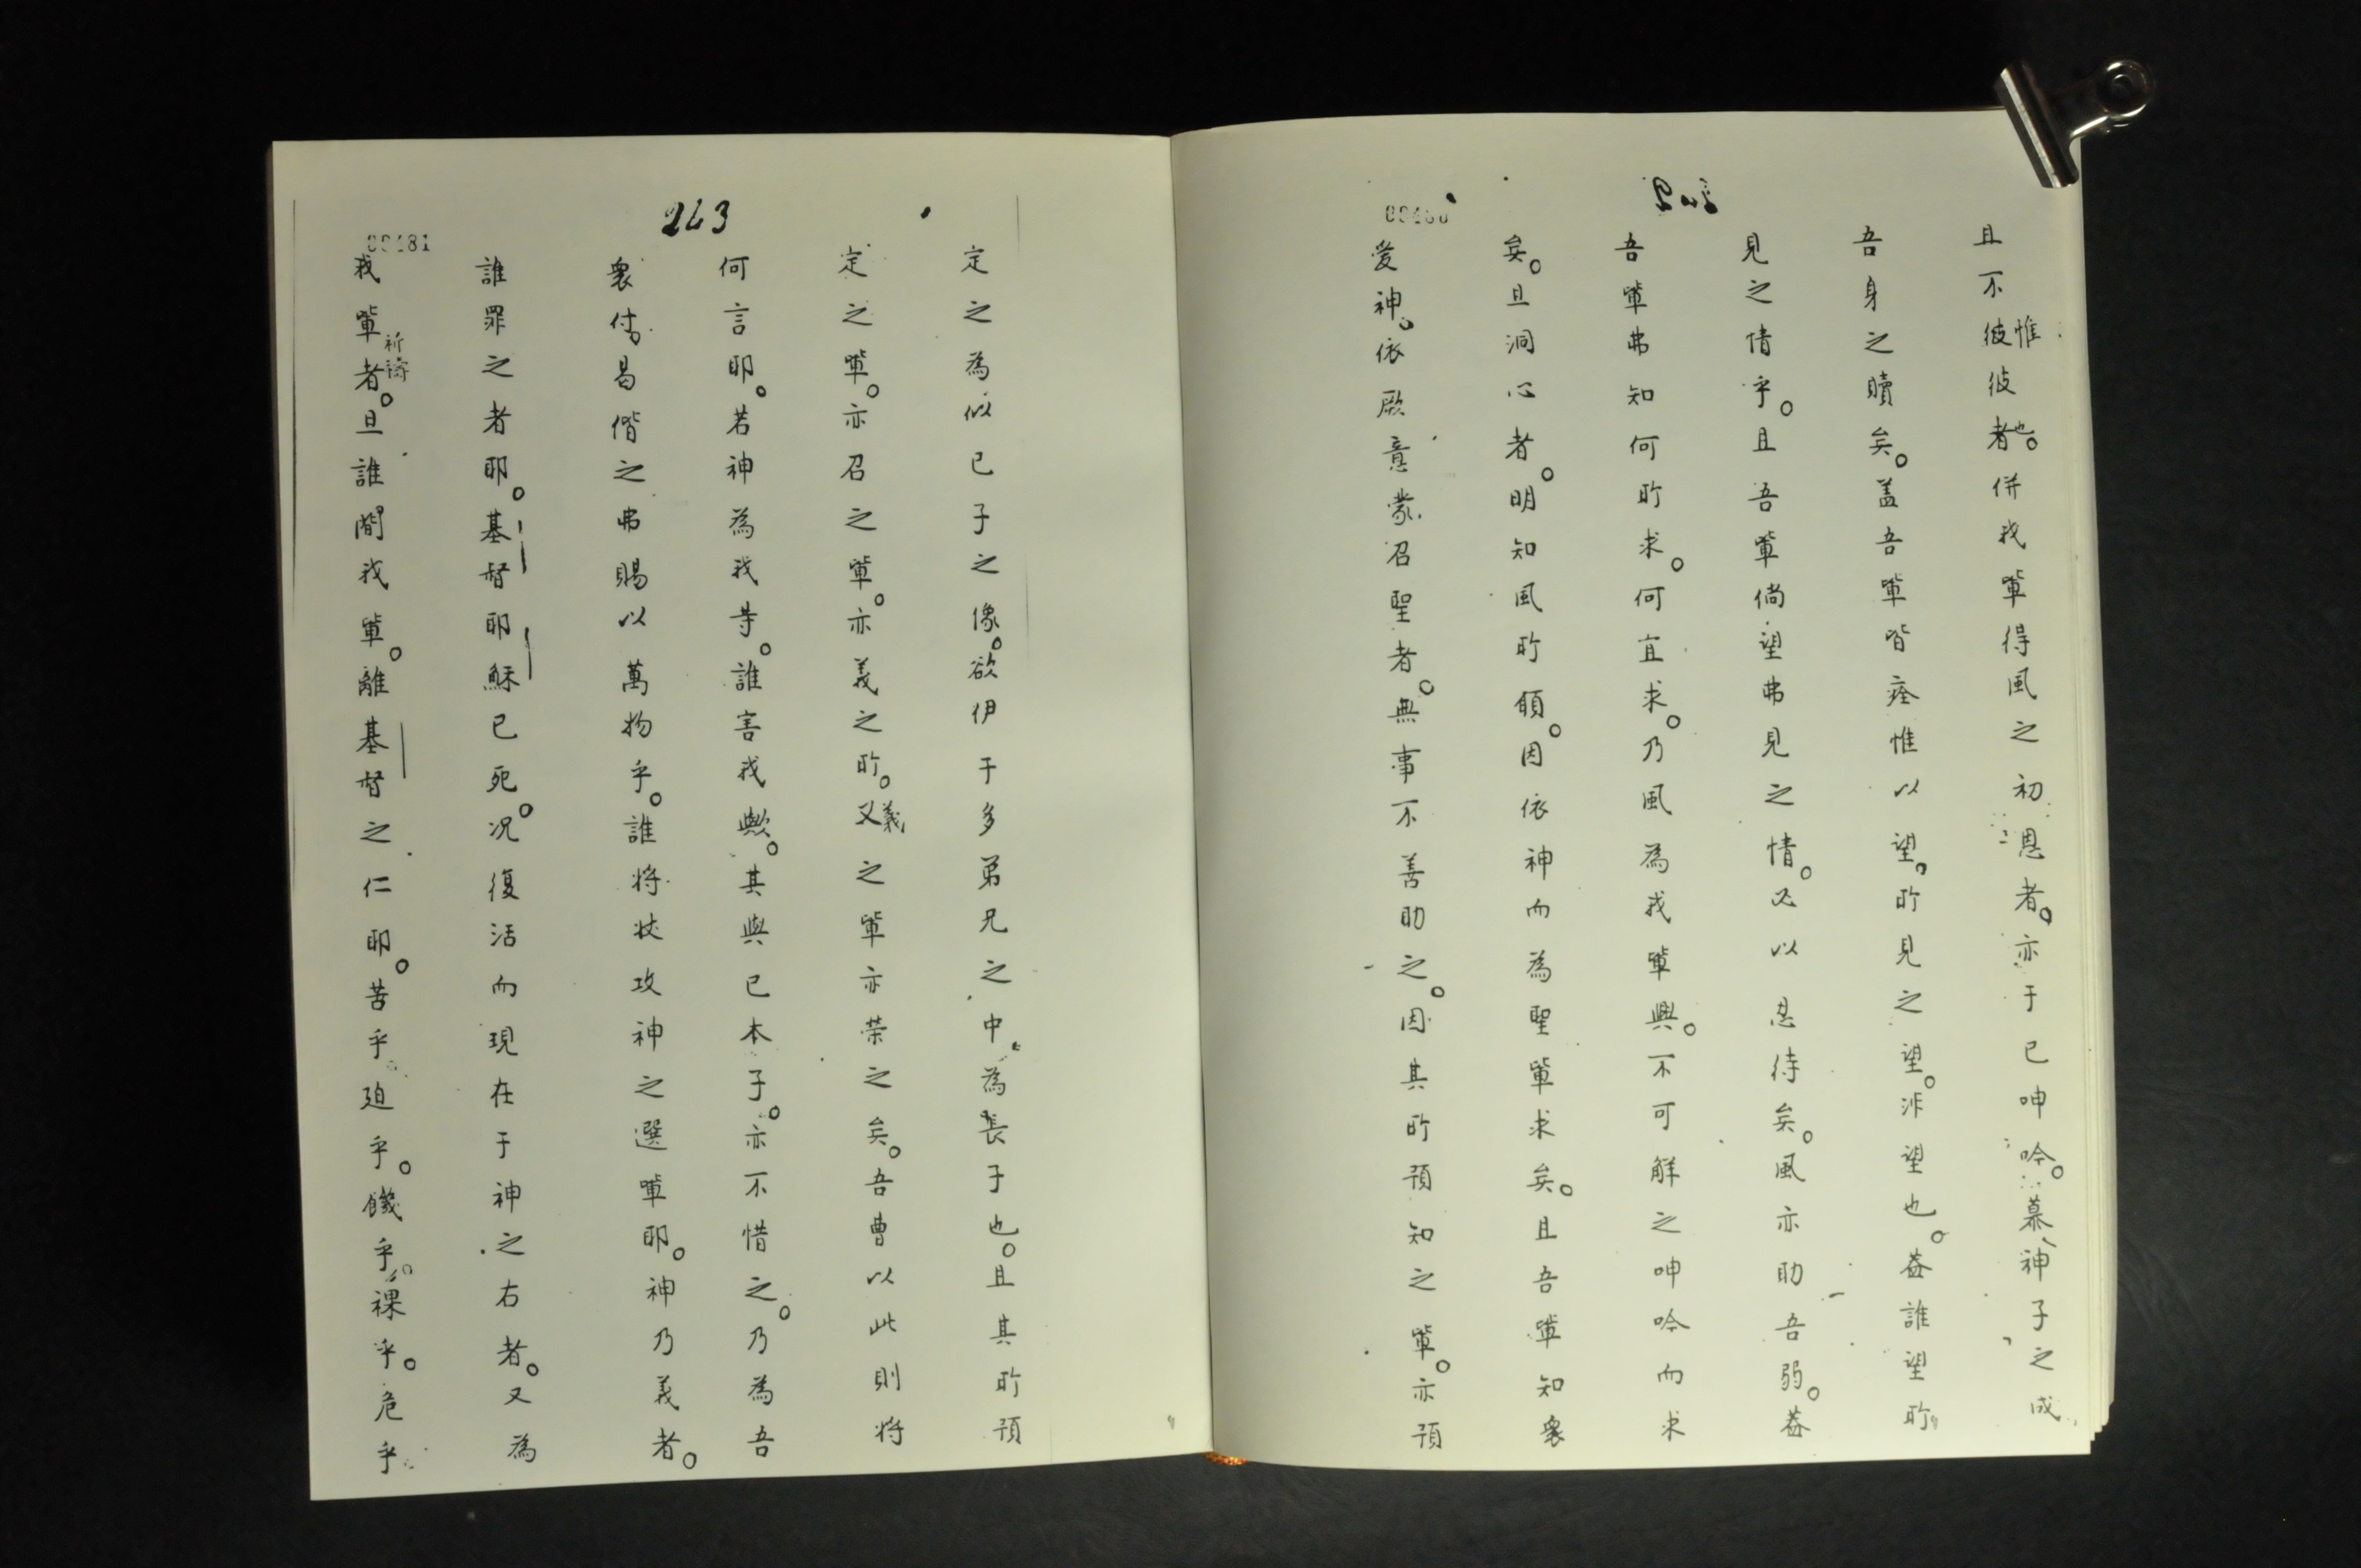 且不惟彼彼者也。併我輩得風之初恩者。亦于已呻吟。慕神子之成
吾身之贖矣。盖吾輩皆痊惟以望。所見之望。非望也。蓋誰望所
見之情乎。且吾輩倘望弗見之情。必以忍待矣。風亦助吾弱。蓋
吾輩弗知何所求。何宜求。乃風為我輩與。不可解之呻吟而求
矣。且洞心者。明知風所願。因依神而為聖輩求矣。且吾輩知衆
愛神。依厥意蒙召聖者。無事不善助之。因其所預知之輩。亦預
00480
263
定之為似已子之像。欲伊于多弟兄之中為長子也。且其所預
定之輩。亦召之輩。亦義之所。又義之輩亦荣之矣。吾曹以此則將
何言耶。若神為我等。誰害我歟。其與已本子。亦不惜之。乃為吾
衆付。曷偕之弗賜以萬物乎。誰將狀攻神之選輩耶。神乃義者。
誰罪之者耶。基督耶穌已死。况復活而現在于神之右者。又為
我輩祈禱者。且誰間我輩。離基督之仁耶。苦乎廹乎。饑乎。裸乎。危乎
00481